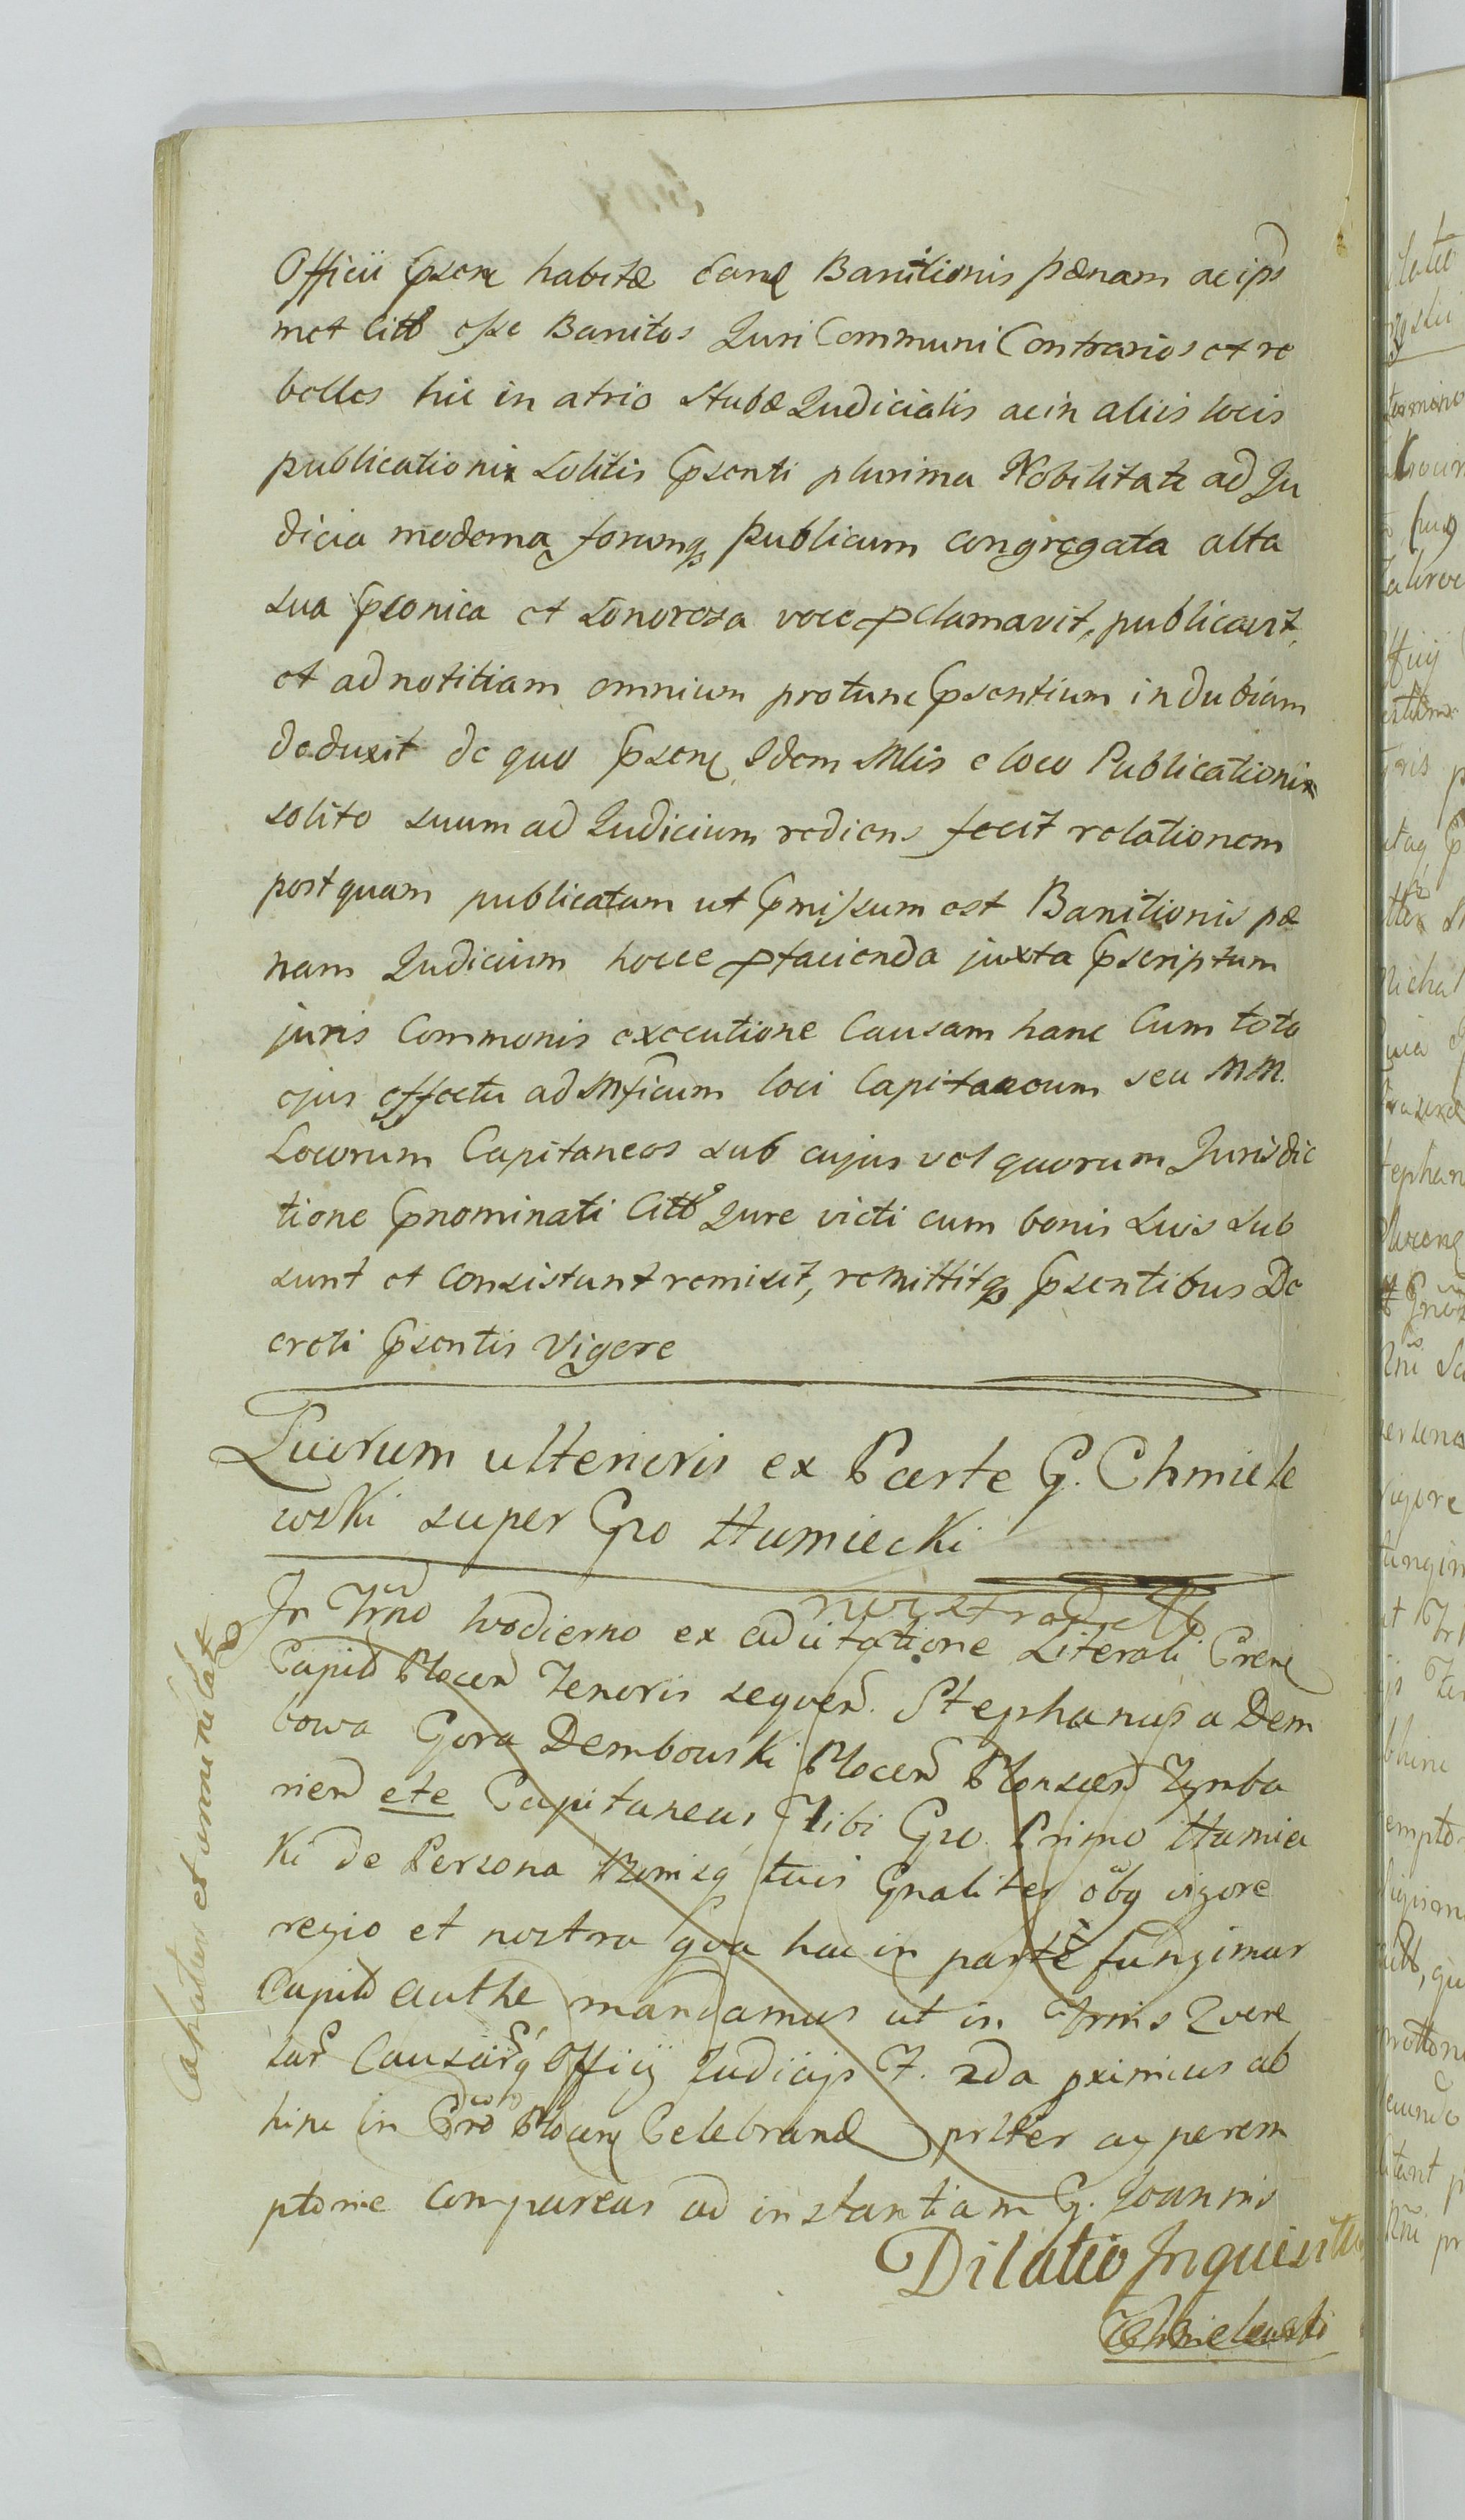 Officii Psene habitæ Eand Banitionis pænam ac ips
met Citt esse Banitos Juri Communi Contrarios et re
belles hic in atrio Stubæ Judicialis ac in aliis locis
publicationis Solitis Psenti plurima Nobilitate ad Ju
dicia moderna forumq publicum congregata alta
sua Pconica et Sonorosa voce pclamavit, publicavit,
et ad notitiam omnium protunc Psentium indubiam
deduxit de quo Psene Idem Mlis e loco Publicationis
solito suum ad Judicium rediens fecit relationem
post quam publicatam ut Pmissum est Banitionis pæ
nam Judicium hocce pfacienda juxta Pscriptum
juris Communis executione Causam hanc Cum toto
ejus effectu ad Mficum loci Capitaneum seu MM.
Locorum Capitaneos sub cujus vel quorum Jurisdic
tione Pnominati Citt Jure victi cum bonis suis sub
sunt et Consistunt remisit, remittitq Psentibus De
creti Psentis Vigore
Lucrum ulterioris ex Parte G. Chmiele
wski super Gro Humiecki
In Trno hodierno ex adcitatione Literali Crene
Capitli Plocen Tenoris seqven. Stephanus a Dem
bowa Gora Dembowski Plocen Plonscen Tymba
rien etc Capitaneus Tibi Gro. Primo Humiec
ki de Persona Bonisq tuis Gnaliter oby vigore
regio et nostra qua hac in parte fungimur
Capitli authe mandamus ut in Trnis Quere
lar Causarq Officij Judicijs F. 2da pximius ab
hinc in Plocen Celebrand prlter ac perem
ptorie compareas ad instantiam G. Joannis
Dilatio Inquisit
Chmielewski